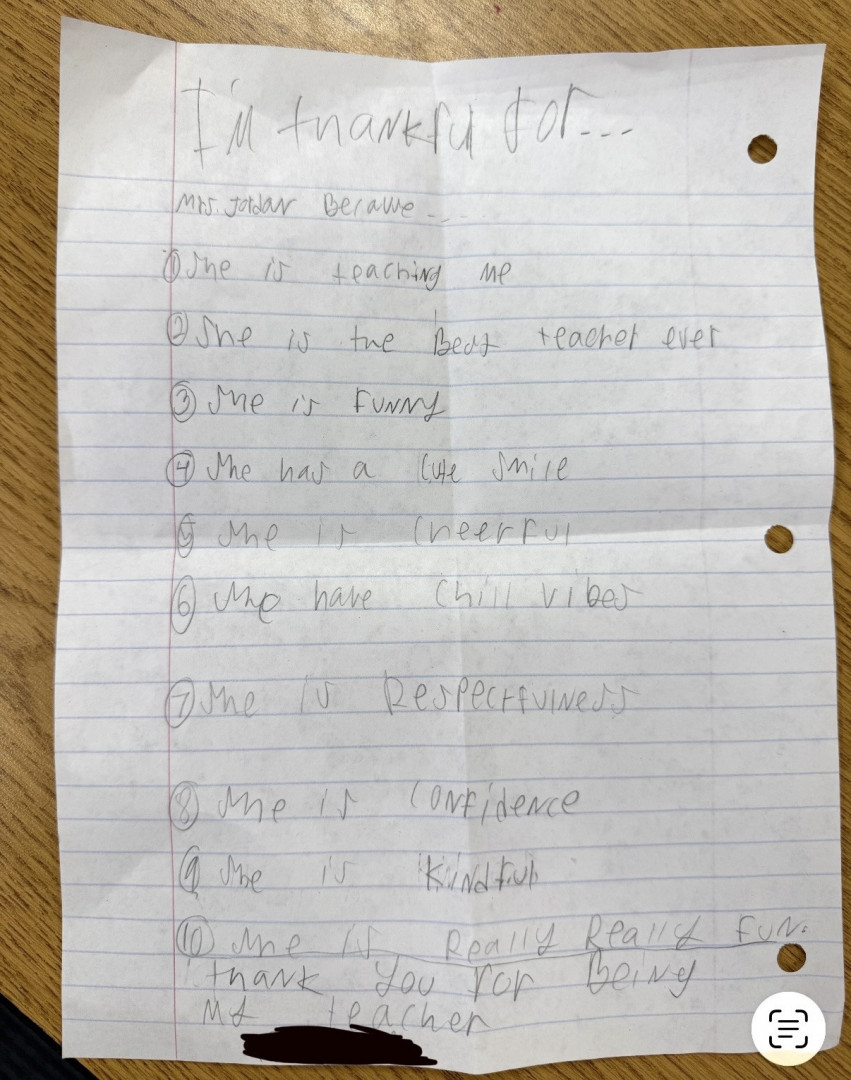 I'm thankful for...
Mrs. Jordan Because...
① She is teaching me
② She is the Best teacher ever
③ She is FUNNY
④ She has a cute smile
⑤ she is Cheerful
⑥ She have Chill vibes
⑦ She is Respectfulness
⑧ She is confidence
⑨ She is Kindful
⑩ she is Really Really Fun.
thank you for Being
My teacher